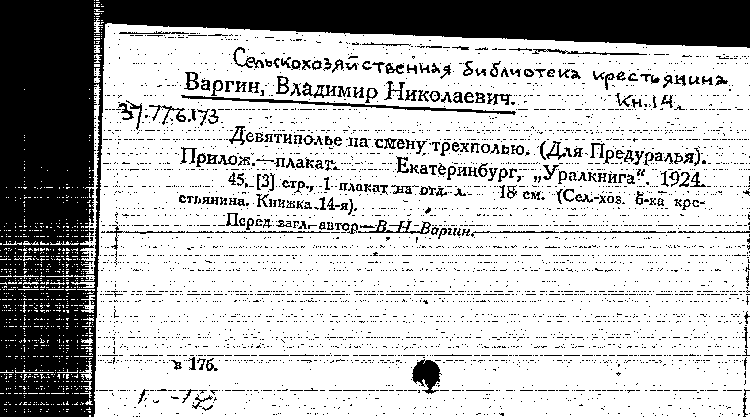 Сельскохозяйственная библиотека крестьянина
Кн. 14.
Варгин, Владимир Николаевич.
37.776.173
Девятиполье на смену трехполью. (Для Предуралья).
Прилож.—плакат. Екатеринбург, „Уралкнига“. 1924.
45, [3] стр., 1 плакат на отд. л. 18 см. (Сел.-хоз. б-ка кре-
стьянина. Книжка 14-я).
Перед загл. автор—В. Н. Варгин.
в 17б.